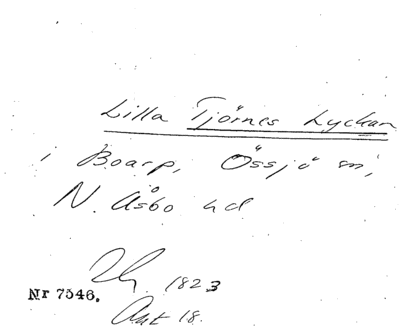 Lilla Tjörnes Lyckan
i Boarp, Össjö sn,
N. Åsbo hd
1823
Nr 7546.
Akt 18.